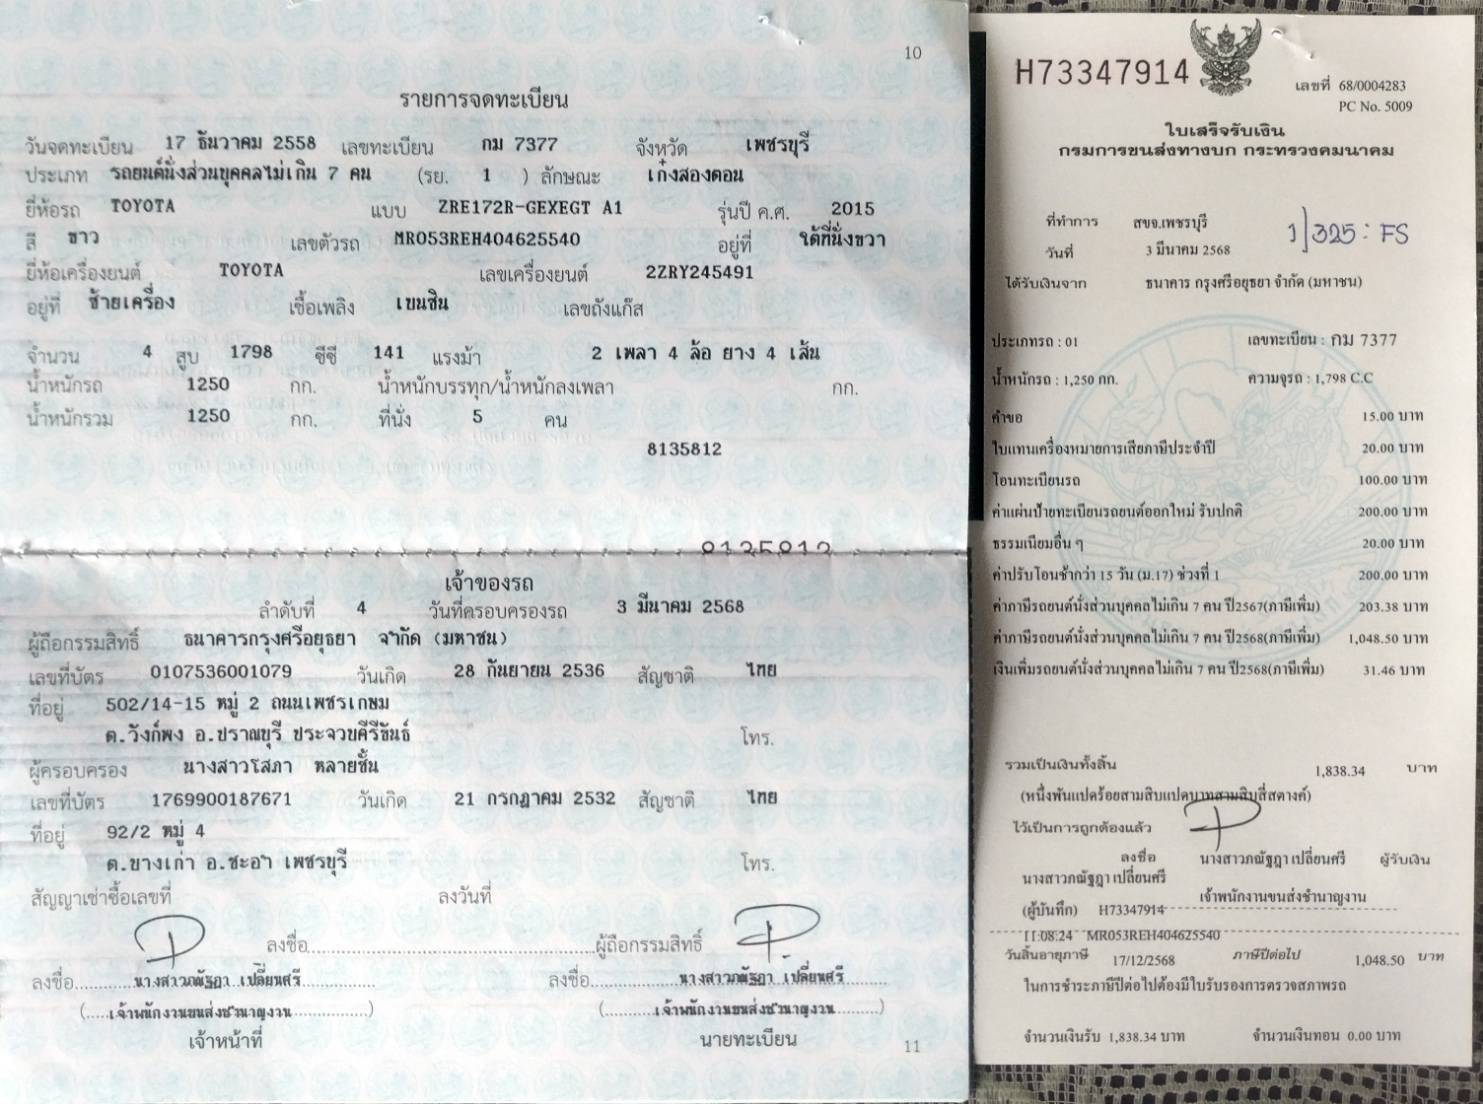 10
รายการจดทะเบียน
วันจดทะเบียน 17 ธันวาคม 2558 เลขทะเบียน กม 7377 จังหวัด เพชรบุรี
ประเภท รถยนต์นั่งส่วนบุคคลไม่เกิน 7 คน (รย. 1 ) ลักษณะ เก๋งสองตอน
ยี่ห้อรถ TOYOTA แบบ ZRE172R-GEXEGT A1 รุ่นปี ค.ศ. 2015
สี ขาว เลขตัวรถ MR053REH404625540 อยู่ที่ ใต้ที่นั่งขวา
ยี่ห้อเครื่องยนต์ TOYOTA เลขเครื่องยนต์ 2ZRY245491
อยู่ที่ ซ้ายเครื่อง เชื้อเพลิง เบนซิน เลขถังแก๊ส
จำนวน 4 สูบ 1798 ซีซี 141 แรงม้า 2 เพลา 4 ล้อ ยาง 4 เส้น
น้ำหนักรถ 1250 กก. น้ำหนักบรรทุก/น้ำหนักลงเพลา กก.
น้ำหนักรวม 1250 กก. ที่นั่ง 5 คน
8135812
8135812
เจ้าของรถ
ลำดับที่ 4 วันที่ครอบครองรถ 3 มีนาคม 2568
ผู้ถือกรรมสิทธิ์ ธนาคารกรุงศรีอยุธยา จำกัด (มหาชน)
เลขที่บัตร 0107536001079 วันเกิด 28 กันยายน 2536 สัญชาติ ไทย
ที่อยู่ 502/14-15 หมู่ 2 ถนนเพชรเกษม
ต.วังก์พง อ.ปราณบุรี ประจวบคีรีขันธ์ โทร.
ผู้ครอบครอง นางสาวโสภา หลายชั้น
เลขที่บัตร 1769900187671 วันเกิด 21 กรกฎาคม 2532 สัญชาติ ไทย
ที่อยู่ 92/2 หมู่ 4
ต.บางเก่า อ.ชะอำ เพชรบุรี โทร.
สัญญาเช่าซื้อเลขที่ ลงวันที่
ลงชื่อ ผู้ถือกรรมสิทธิ์
ลงชื่อ นางสาวภณัฐฎา เปลี่ยนศรี ลงชื่อ นางสาวภณัฐฎา เปลี่ยนศรี
(เจ้าพนักงานขนส่งชำนาญงาน) (เจ้าพนักงานขนส่งชำนาญงาน)
เจ้าหน้าที่ นายทะเบียน
11
H73347914
เลขที่ 68/0004283
PC No. 5009
ใบเสร็จรับเงิน
กรมการขนส่งทางบก กระทรวงคมนาคม
ที่ทำการ สขจ.เพชรบุรี
1/325: FS
วันที่ 3 มีนาคม 2568
ได้รับเงินจาก ธนาคาร กรุงศรีอยุธยา จำกัด (มหาชน)
ประเภทรถ : 01 เลขทะเบียน : กม 7377
น้ำหนักรถ : 1,250 กก. ความจุรถ : 1,798 C.C
คำขอ 15.00 บาท
ใบแทนเครื่องหมายการเสียภาษีประจำปี 20.00 บาท
โอนทะเบียนรถ 100.00 บาท
ค่าแผ่นป้ายทะเบียนรถยนต์ออกใหม่ รับปกติ 200.00 บาท
ธรรมเนียมอื่น ๆ 20.00 บาท
ค่าปรับโอนช้ากว่า 15 วัน (ม.17) ช่วงที่ 1 200.00 บาท
ค่าภาษีรถยนต์นั่งส่วนบุคคลไม่เกิน 7 คน ปี2567(ภาษีเพิ่ม) 203.38 บาท
ค่าภาษีรถยนต์นั่งส่วนบุคคลไม่เกิน 7 คน ปี2568(ภาษีเพิ่ม) 1,048.50 บาท
เงินเพิ่มรถยนต์นั่งส่วนบุคคลไม่เกิน 7 คน ปี2568(ภาษีเพิ่ม) 31.46 บาท
รวมเป็นเงินทั้งสิ้น 1,838.34 บาท
(หนึ่งพันแปดร้อยสามสิบแปดบาทสามสิบสี่สตางค์)
ไว้เป็นการถูกต้องแล้ว
ลงชื่อ นางสาวภณัฐฎา เปลี่ยนศรี ผู้รับเงิน
นางสาวภณัฐฎา เปลี่ยนศรี
เจ้าพนักงานขนส่งชำนาญงาน
(ผู้บันทึก) H73347914
11:08:24 MR053REH404625540
วันสิ้นอายุภาษี 17/12/2568 ภาษีปีต่อไป 1,048.50 บาท
ในการชำระภาษีปีต่อไปต้องมีใบรับรองการตรวจสภาพรถ
จำนวนเงินรับ 1,838.34 บาท จำนวนเงินทอน 0.00 บาท